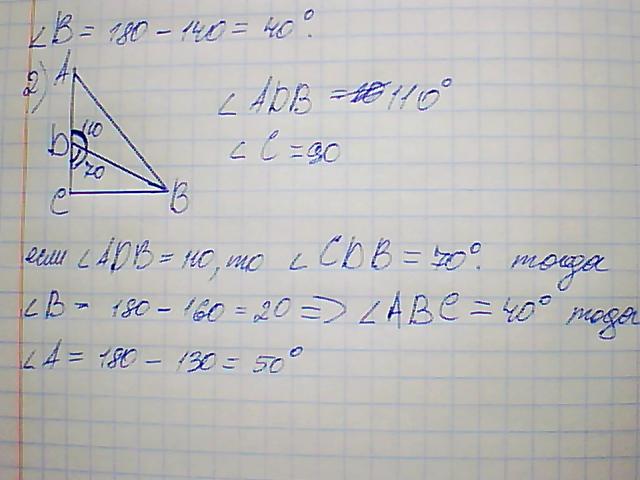 ∠B = 180 - 140 = 40°.
2)
A
∠ADB = 110°
∠C = 90
110
D
70
C
B
если ∠ADB = 110, то ∠CDB = 70°. тогда
∠B = 180 - 160 = 20 => ∠ABC = 40° тогда
∠A = 180 - 130 = 50°